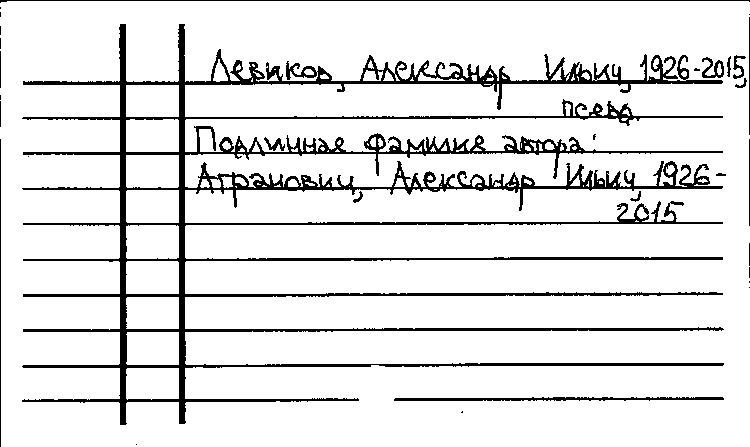 Левиков, Александр Ильич, 1926-2015,
псевд.
Подлинная фамилия автора:
Агранович, Александр Ильич, 1926-
2015